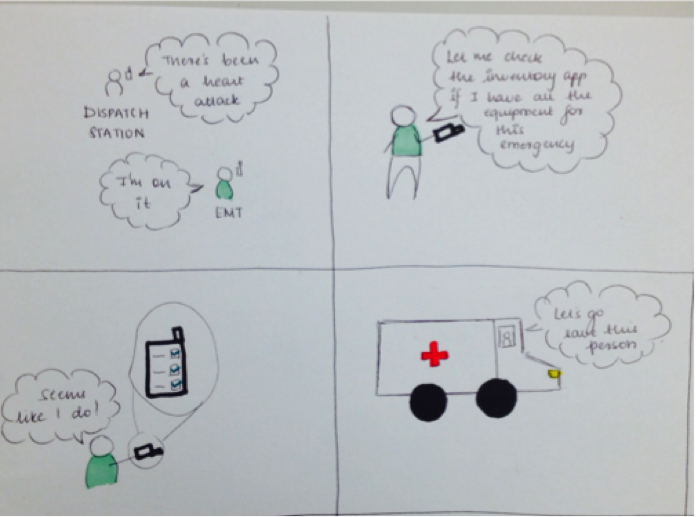 There's been
a heart
attack
DISPATCH
STATION
I'm on
it
EMT
Let me check
the inventory app
if I have all the
equipment for
this
emergency
Seems
like I do!
Let's go
save this
person